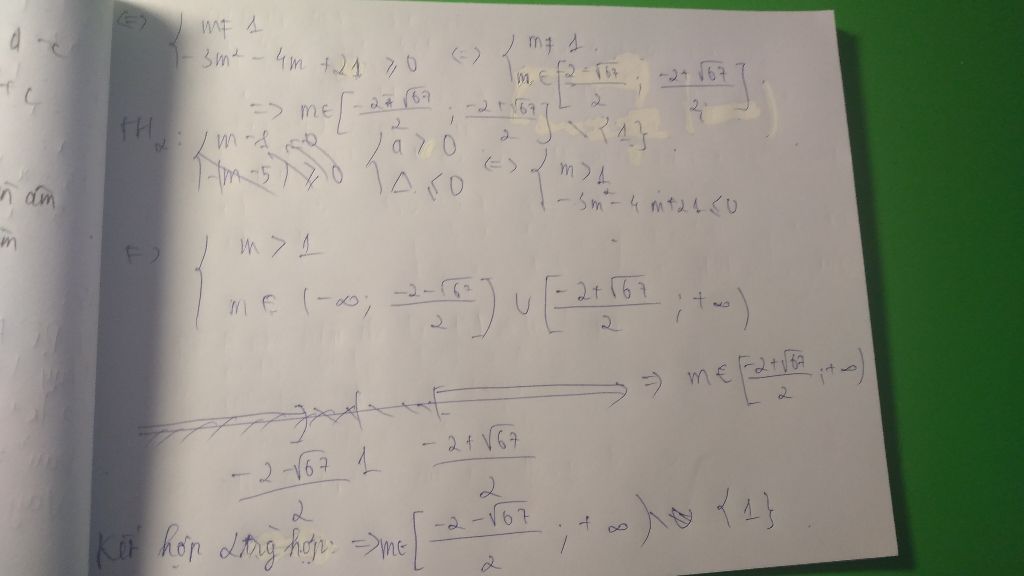 <=> { m ≠ 1
- 3m² - 4m + 21 ≥ 0 <=> { m ≠ 1
m ∈ [ (-2 - √67)/2 ; (-2 + √67)/2 ]
=> m ∈ [ (-2 - √67)/2 ; (-2 + √67)/2 ] \ {1}
TH2: { a > 0
Δ ≤ 0 <=> { m > 1
- 3m² - 4m + 21 ≤ 0
<=> { m > 1
m ∈ (-∞; (-2 - √67)/2 ] ∪ [ (-2 + √67)/2 ; +∞)
=> m ∈ [ (-2 + √67)/2 ; +∞)
(-2 - √67)/2 1 (-2 + √67)/2
Kết hợp 2 trg hợp: => m ∈ [ (-2 - √67)/2 ; +∞) \ {1}